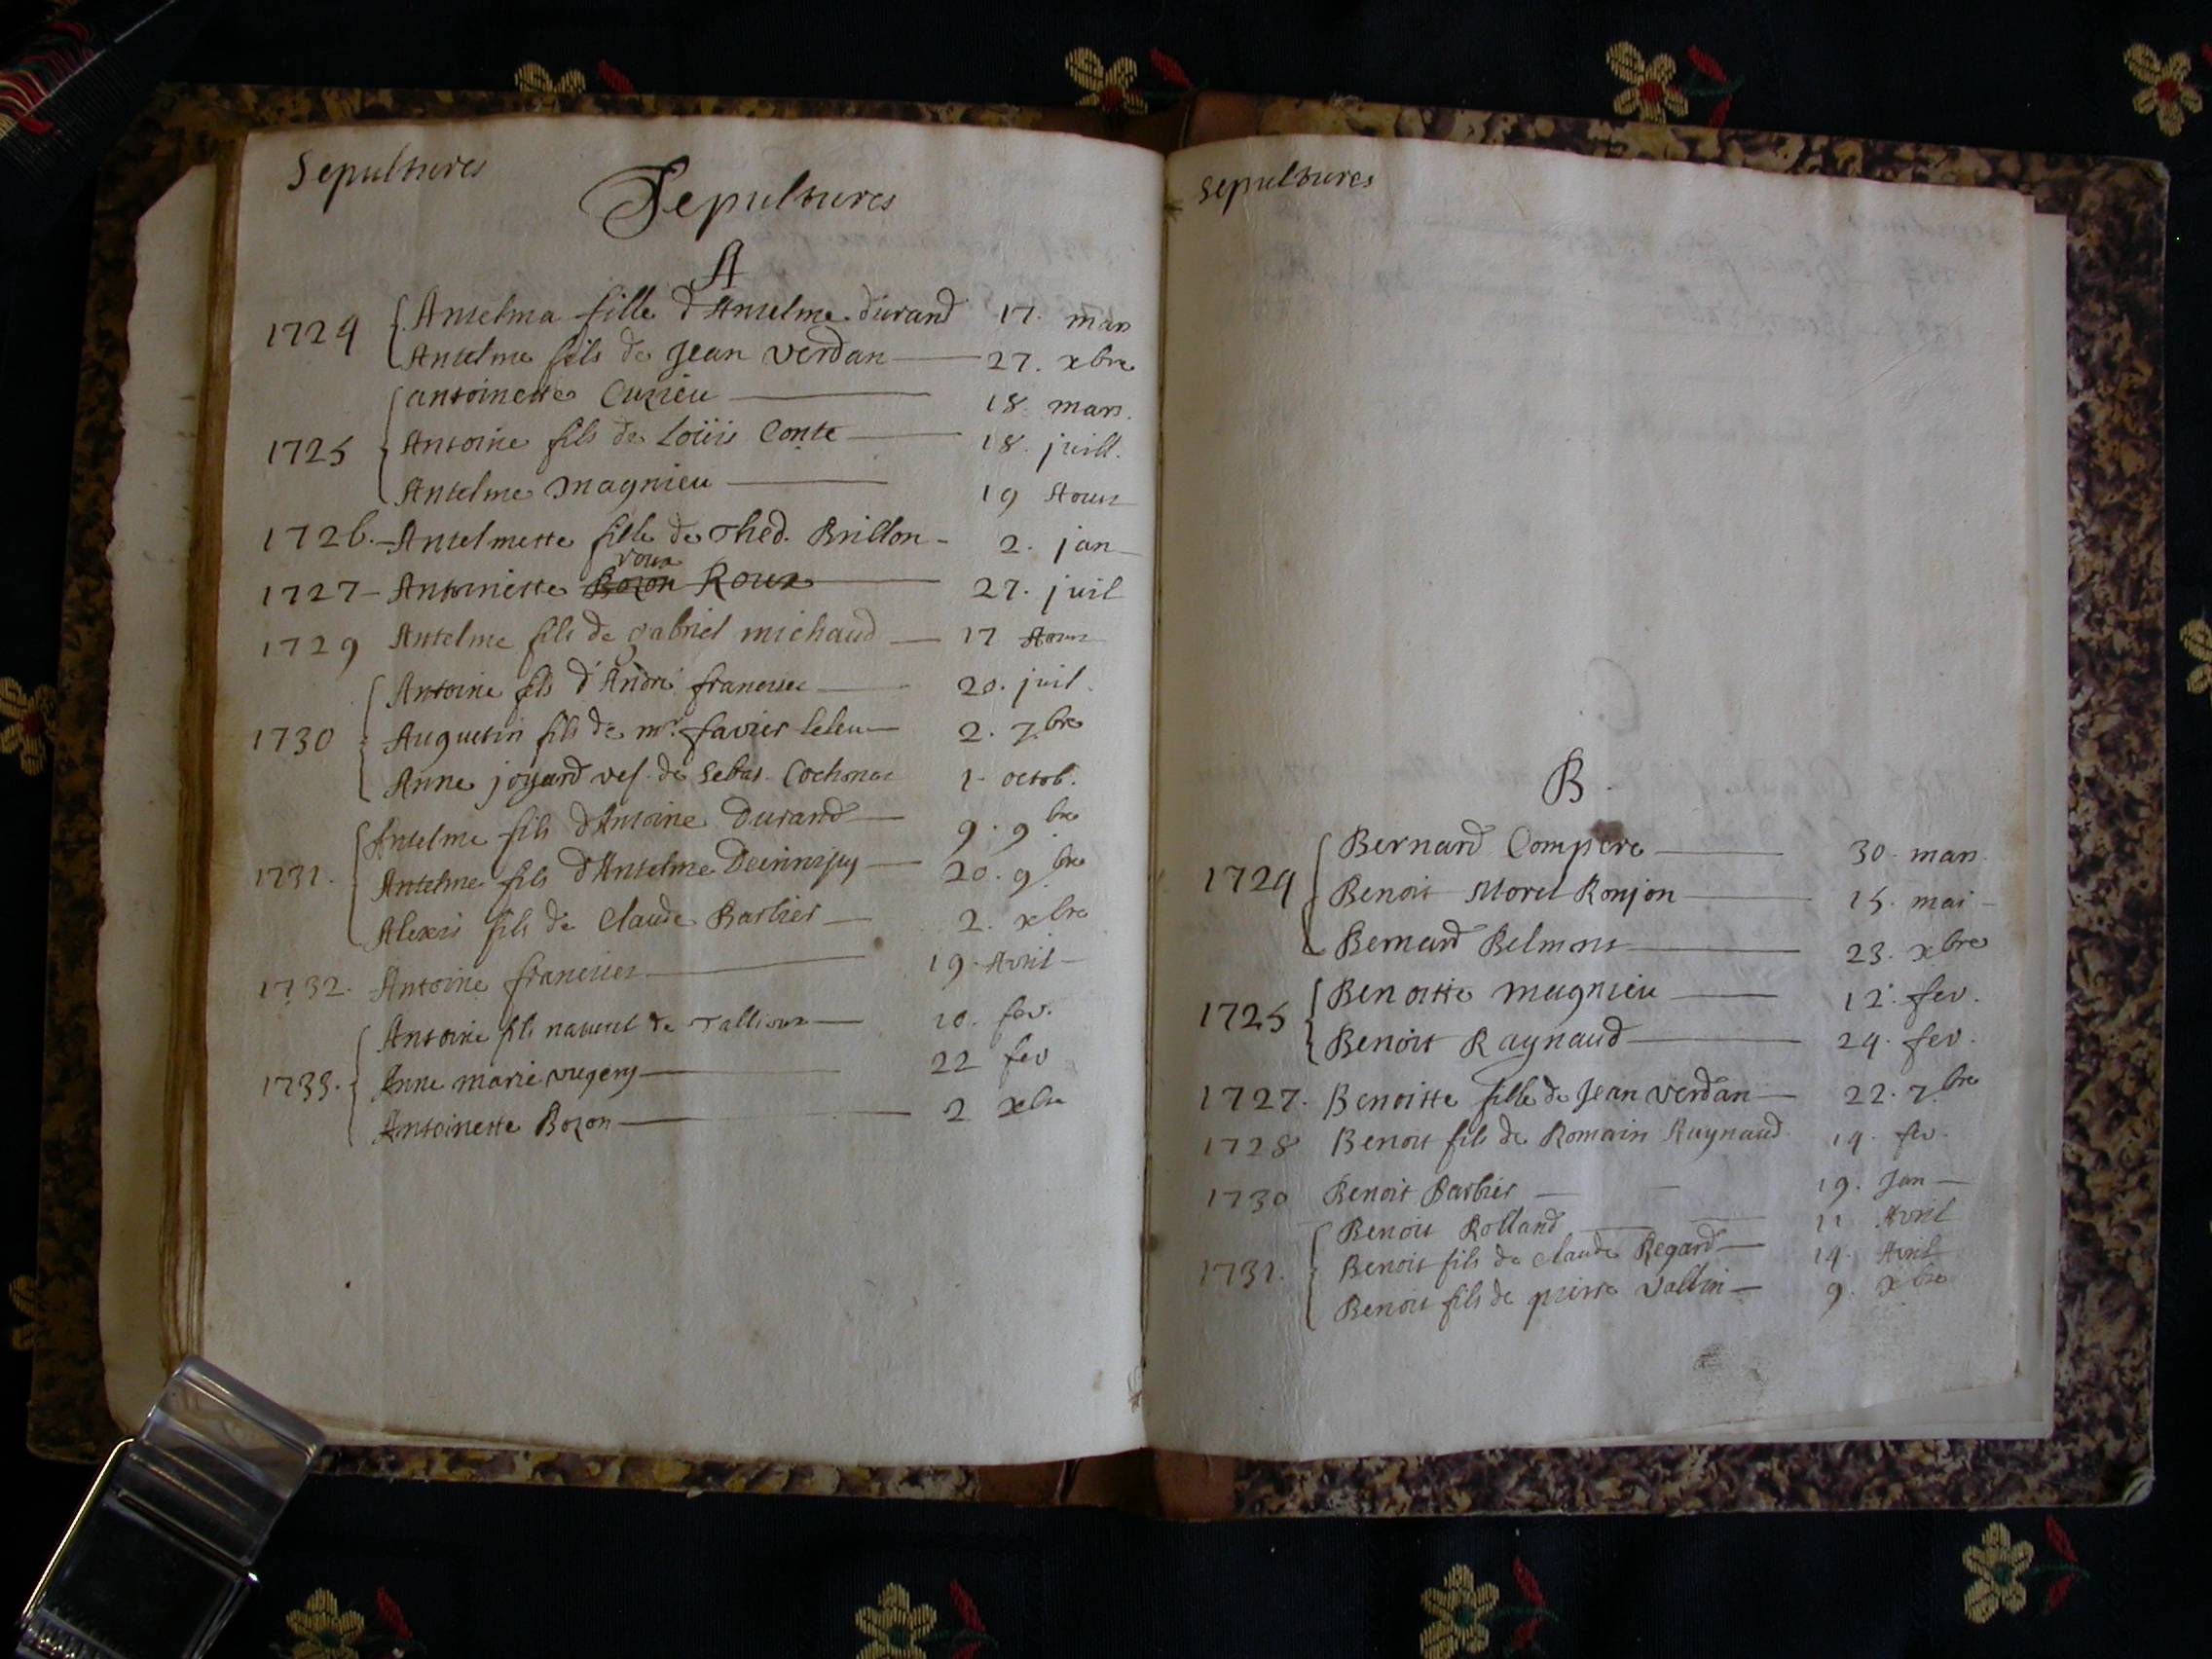 Sepultures
Sepultures
A
1724 Antelma fille d'Antelme durand 17. mars
Antelme fils de Jean verdan 27. xbre
antoinette Curieu 18. mars.
1725 Antoine fils de Loüis Conte 18. juill.
Antelme magnieu 19 Aoust
1726. Antelmette fille de Thed. Brillon 2. jan
roux
1727 Antoinette Bozon Roux 27. juil
1729 Antelme fils de gabriel michaud 17 Aoust
Antoine fils d'André 20. juil.
1730 Augustin fils de mr. favier 2. 7.bre
Anne joyard vef. de Sebas. 1. octob.
Antelme fils d'Antoine Durand 9. 9.bre
1731. Antelme fils d'Antelme 20. 9.bre
Alexis fils de Claude Barbier 2. xbre
1732. Antoine 19. Avril
Antoine fils naturel de 10. fev.
1733. Anne marie 22 fev
Antoinette Bozon 2 xbre
Sepultures
B.
Bernard Compere 30. mars.
1724 Benoit Morel Ronjon 15. mai
Bernard Belmont 23. xbre
1725 Benoitte magnieu 12. fev.
Benoit Raynaud 24. fev.
1727. Benoitte fille de Jean verdan 22. 7.bre
1728 Benoit fils de Romain Raynaud 14. fev.
1730 Benoit Barbier 19. Jan
Benoit Rolland 11 Avril
1731. Benoit fils de claude Regard 14. Avril
Benoit fils de pierre Vallin 9. xbre